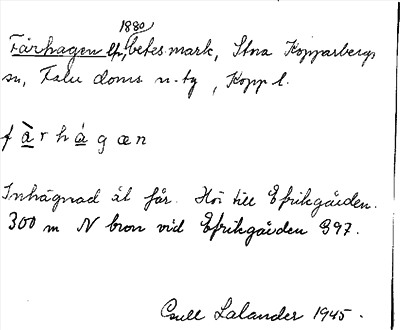 1880
Fårhagen lp, betes mark, Stora Kopparbergs
sn, Falu doms n. tg, Kopp l.
f à r h á g æ n
Inhägnad åt får. Hör till Efrikgården.
300 m N bron vid Efrikgården 997.
Lalander 1945.